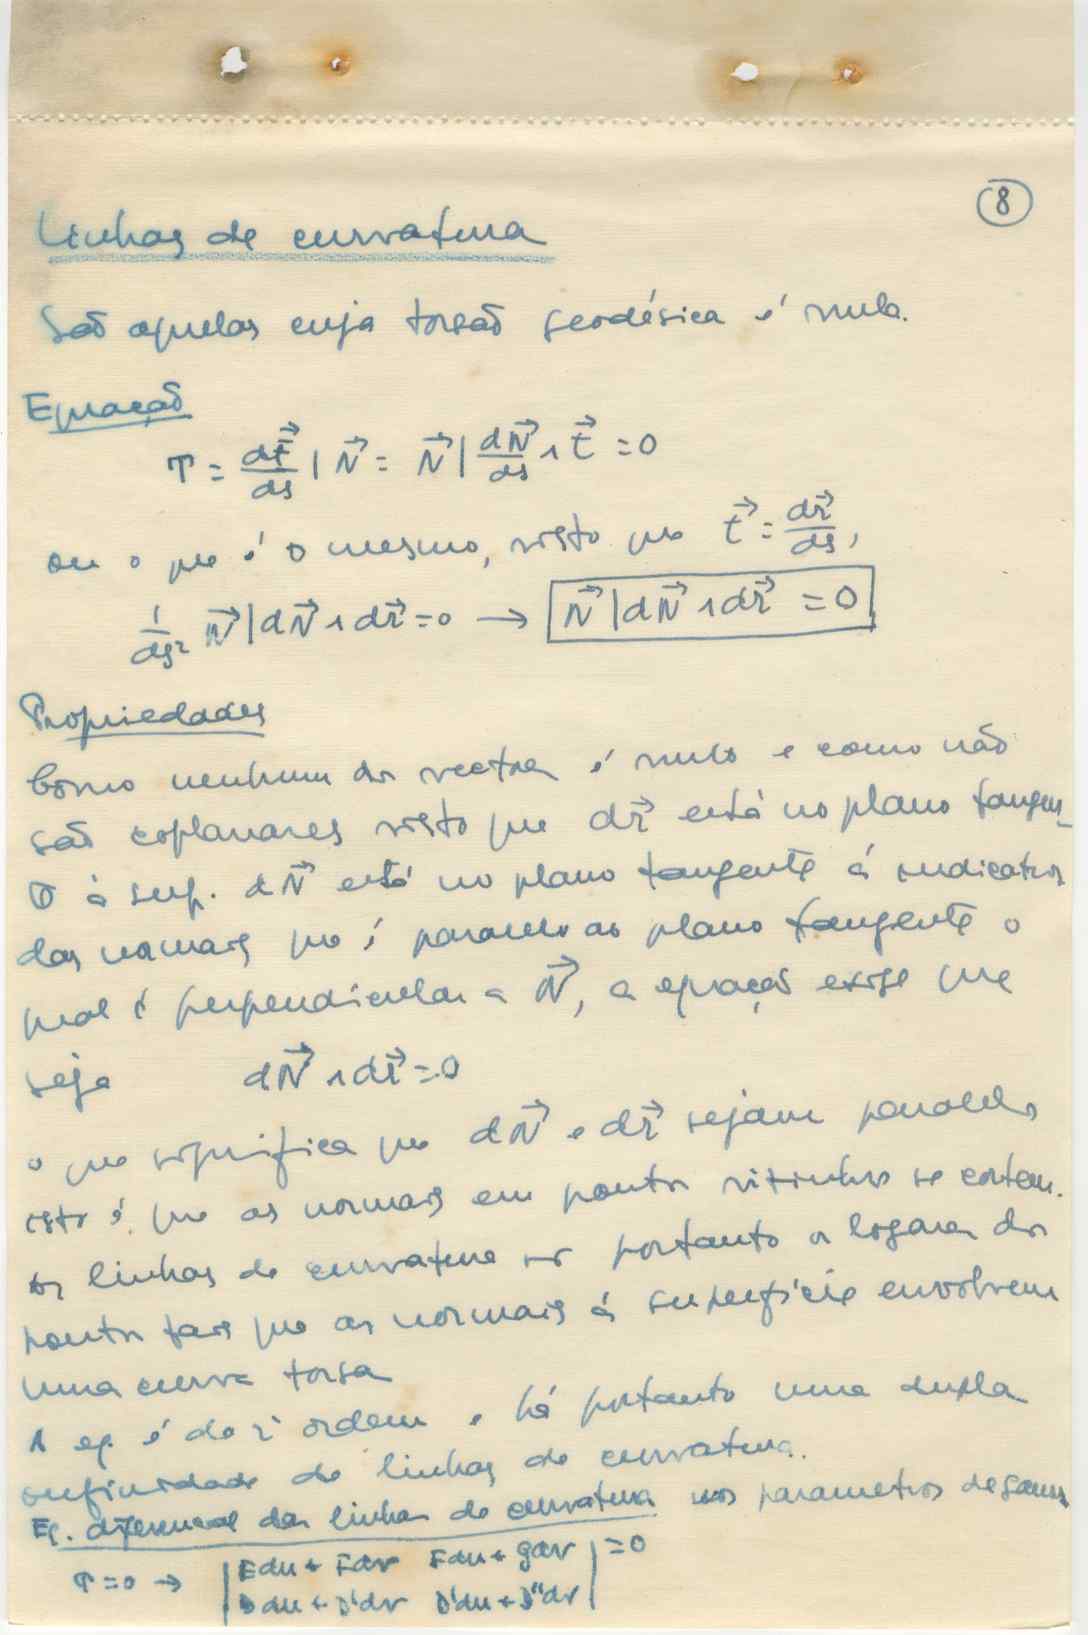 8
Linhas de curvatura
São aquelas cuja torsão geodésica é nula.
Equação
T = dt⃗/ds | N⃗ = N⃗ | dN⃗/ds ∧ t⃗ = 0
ou o que é o mesmo, visto que t⃗ = dr⃗/ds,
1/ds² N⃗ | dN⃗ ∧ dr⃗ = 0 → N⃗ | dN⃗ ∧ dr⃗ = 0
Propriedades
Como nenhum dos vectores é nulo e como não
são coplanares visto que dr⃗ está no plano tangen-
te à sup. dN⃗ está no plano tangente á indicatriz
das normais que é paralelo ao plano tangente o
qual é perpendicular a N⃗, a equação exige que
seja dN⃗ ∧ dr⃗ = 0
o que significa que dN⃗ e dr⃗ sejam paralelos
isto é, que as normais em pontos vizinhos se cortem.
As linhas de curvatura são portanto os logares dos
pontos tais que as normais á superfície envolvem
uma curva torsa
A eq. é de 2ª ordem e há portanto uma dupla
infinidade de linhas de curvatura.
Eq. diferencial das linhas de curvatura nos parametros de gauss
T = 0 → | Edu + Fdv Fdu + gdv | = 0
| Ddu + D'dv D'du + D''dv |